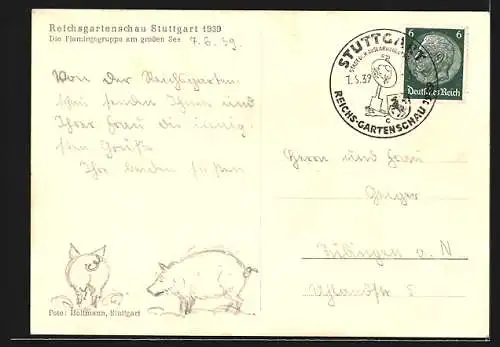 Reichsgartenschau Stuttgart 1939
Die Flamingogruppe am großen See
7.6.39.
Von der Reichsgarten
schau senden Ihnen und
Ihrer Frau die innig-
sten Grüße
Ihre beiden süßen
Foto: Holtmann, Stuttgart
STUTTGART
7.6.39
REICHS-GARTENSCHAU
c
6 6
Deutsches Reich
Herrn und Frau
Geiger
Tübingen a. N
Uhlandstr 5